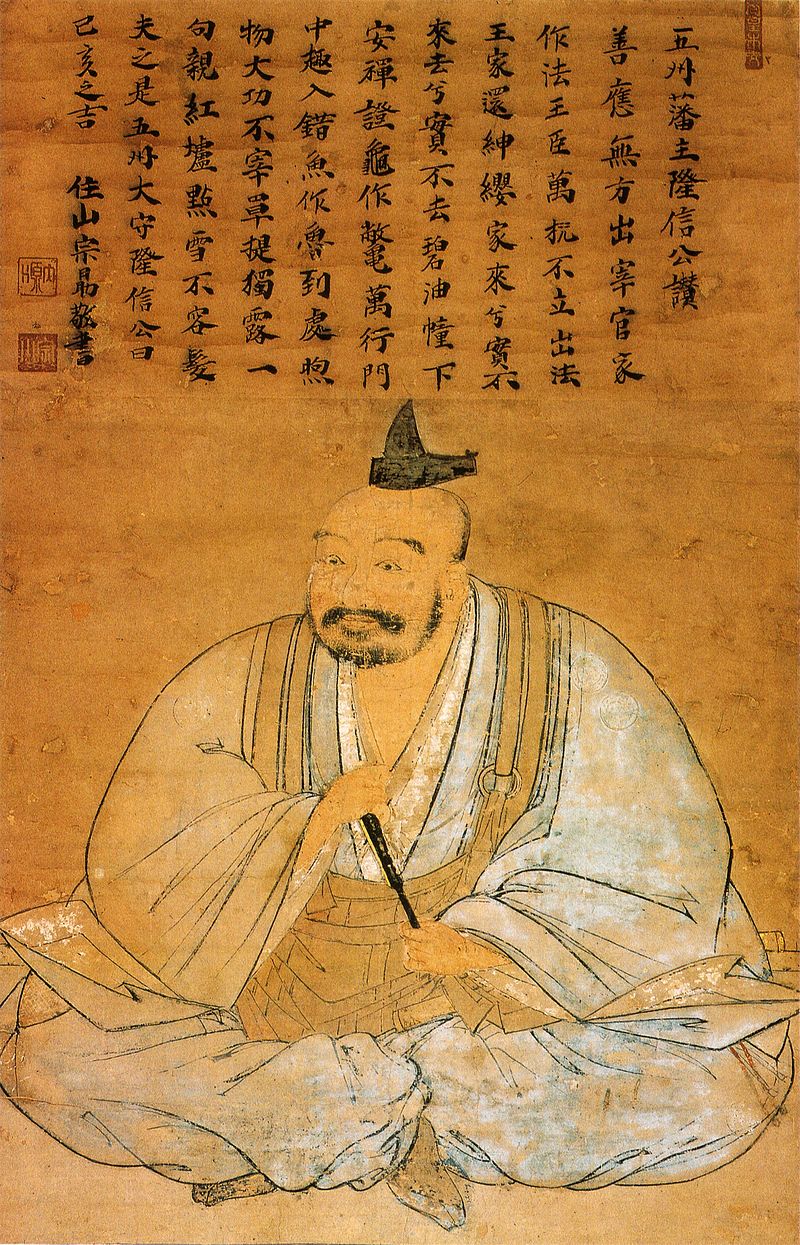 五州藩主隆信公讃
善應無方出宰官家
作法王臣萬不立出法
王家還紳纓家來兮實不
來去兮實不去碧油幢下
安禪證龜作鼈萬行門
中趣入錯魚作魯到處煦
物大功不宰單提獨露一
句親紅爐點雪不容髮
夫之是五州大守隆信公曰
己亥之吉 住山宗敬書